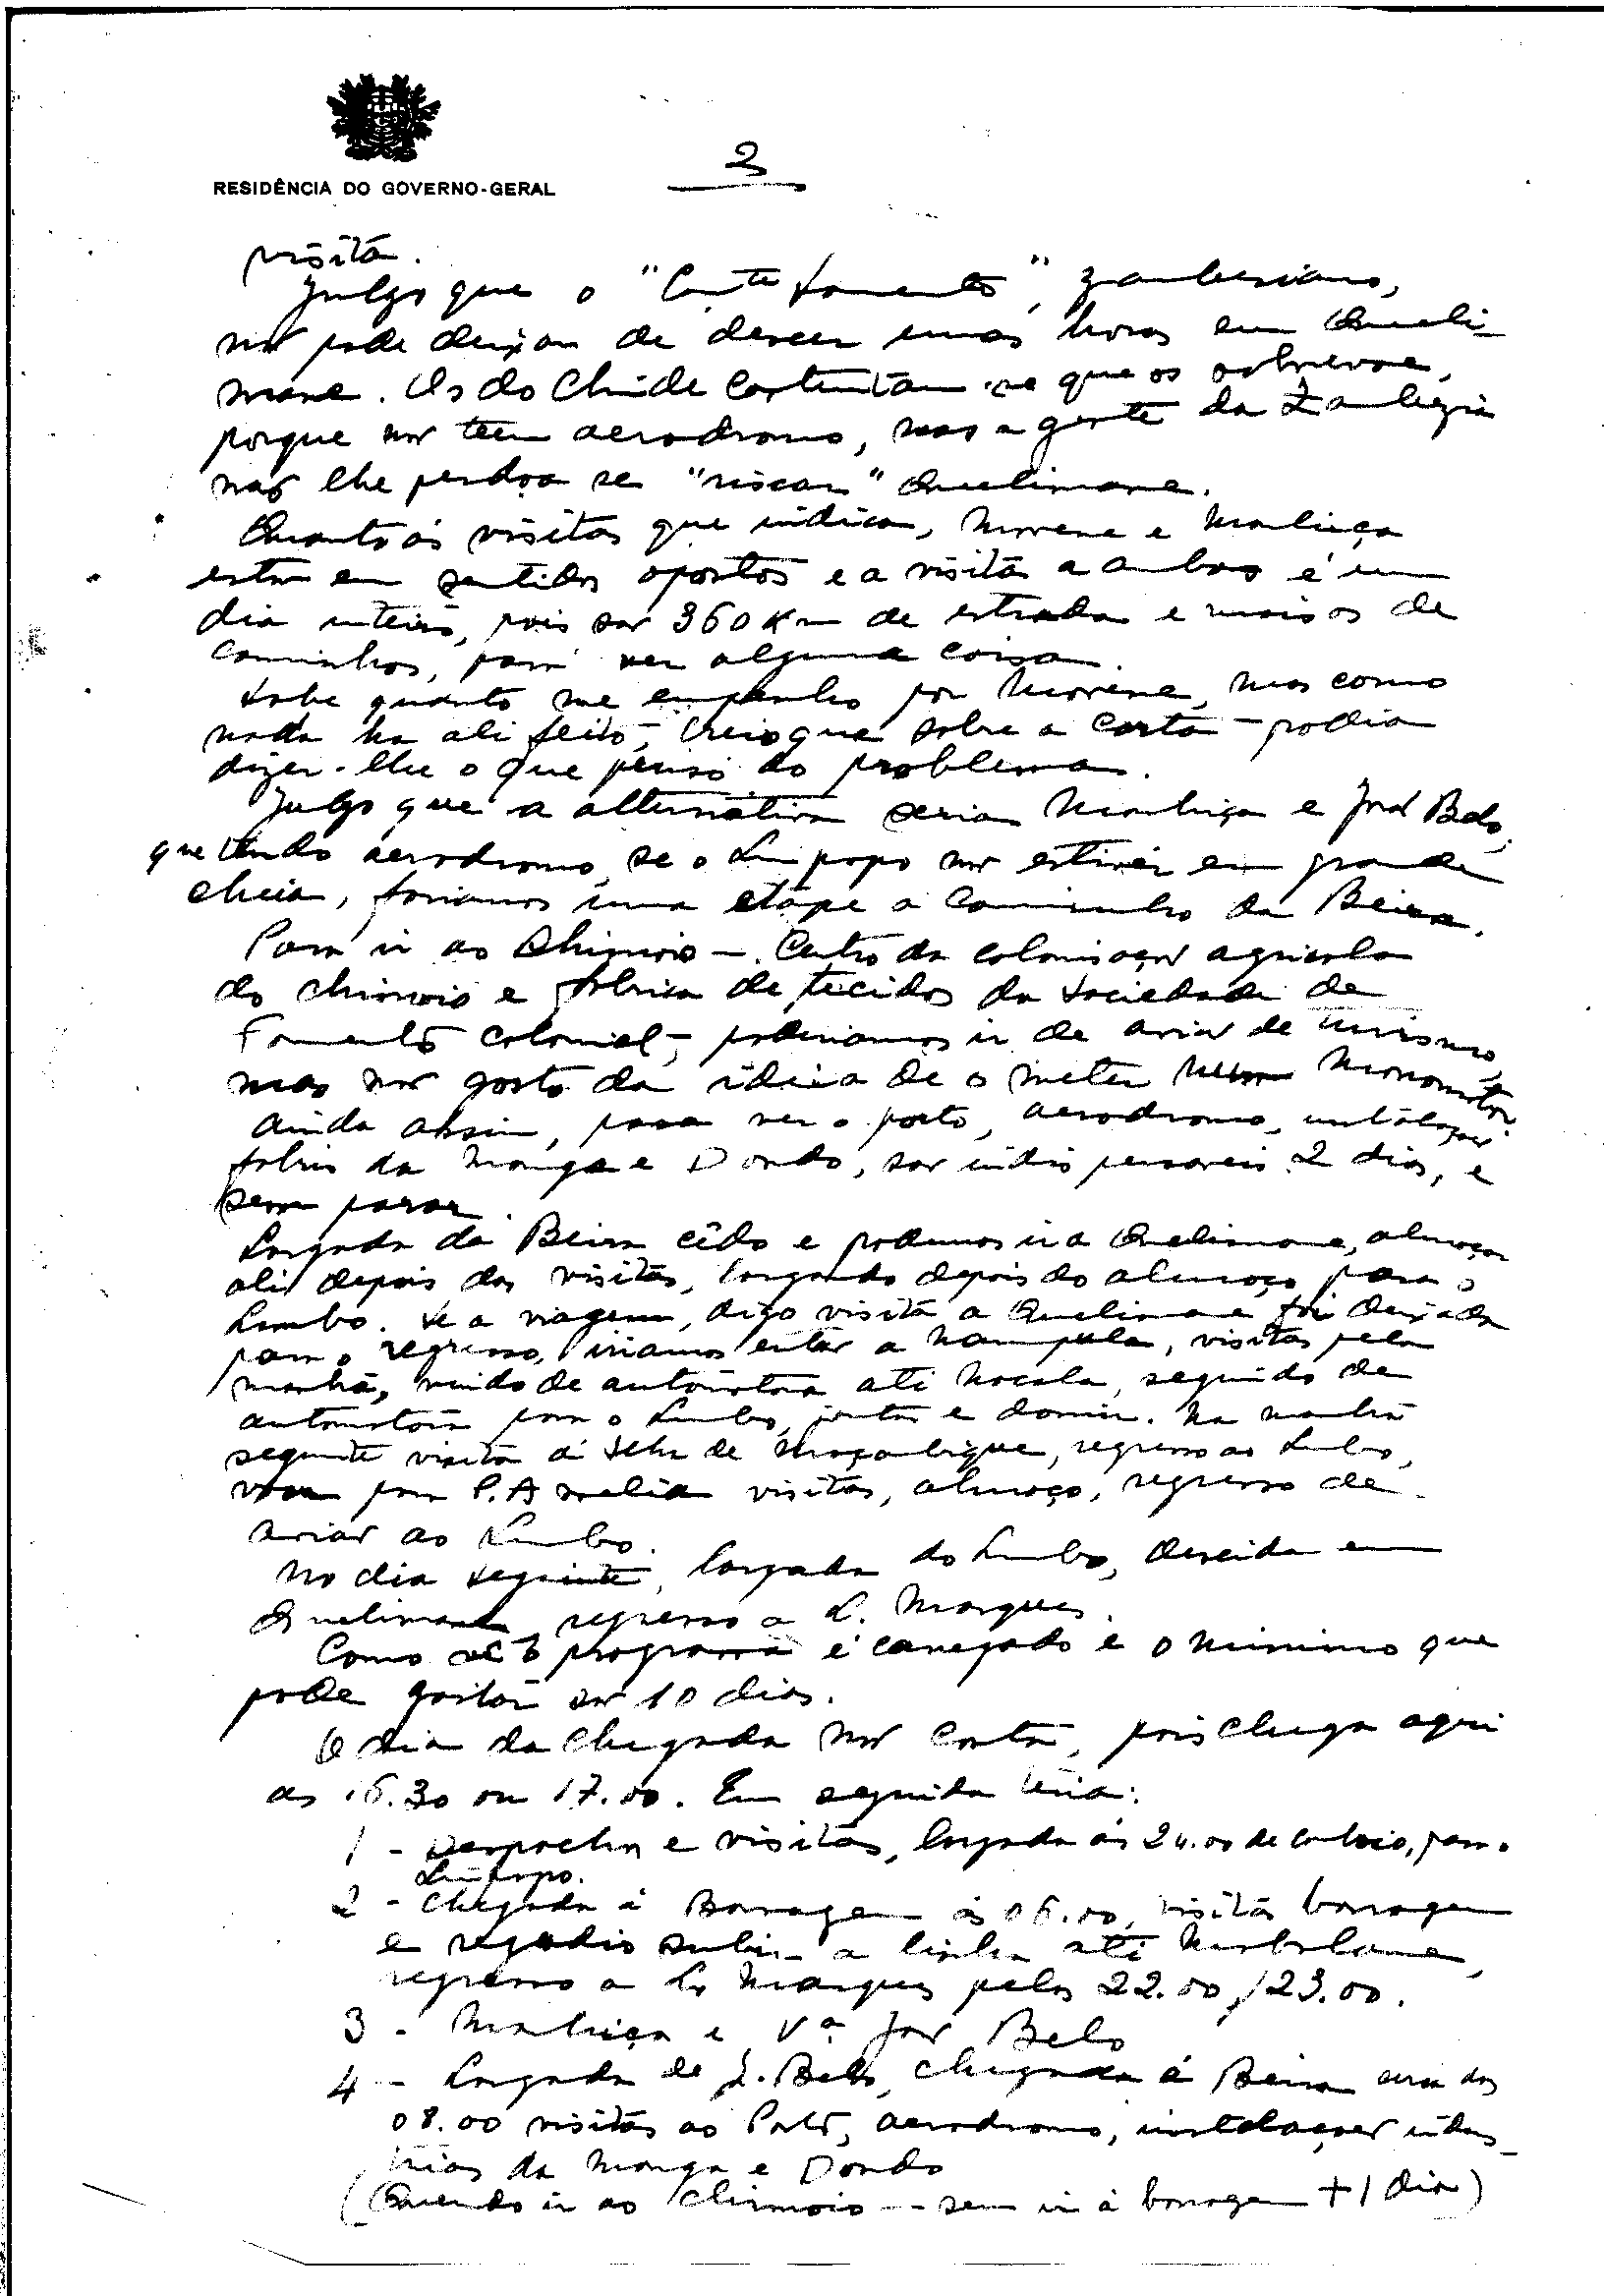 RESIDÊNCIA DO GOVERNO-GERAL
2
visita.
Julgo que o " fomento", zambeziano,
não pode deixar de descer umas horas em Queli-
mane. Os do Chinde contentam-se que os sobrevoe,
porque não tem aerodromo, mas a gente da Zambezia
não lhe perdoa se "riscar" Quelimane.
Quanto ás visitas que indica, Movene e Manhiça
estão em sentidos opostos e a visita a ambos é um
dia inteiro, pois são 360 Km de estrada e mais os de
caminhos, para ver alguma coisa.
Sabe quanto me empenho por Movene, mas como
nada ha ali feito, creio que sobre a carta podia
dizer-lhe o que penso do problema.
Julgo que a alternativa seria Manhiça e João Belo,
que tendo aerodromo, se o Limpopo não estiver em grande
cheia, fariamos uma etape a caminho da Beira.
Para ir ao Chimoio - Centro da colonisação agricola
do Chimoio e fabrica de tecidos da Sociedade de
Fomento Colonial, poderiamos ir de avião de
mas não gosto da ideia de o meter num monomotor.
Ainda assim, para ver o porto, aerodromo, instalações
fabris da Manga e Dondo, são indispensaveis 2 dias, e
sem parar.
Largada da Beira cêdo e podemos ir a Quelimane, almoçar
ali depois das visitas, largando depois do almoço para o
Lumbo. Se a viagem, digo visita a Quelimane fôr deixada
para o regresso, iriamos então a Nampula, visitas pela
manhã, vindo de automotora até Nacala, seguindo de
automotora para o Lumbo, jantar e dormir. Na manhã
seguinte visita á Ilha de Moçambique, regresso ao Lumbo,
voo para P. Amelia visitas, almoço, regresso de
avião ao Lumbo.
No dia seguinte, largada do Lumbo, descida em
Quelimane, regresso a L. Marques.
Como vê o programa é carregado e o minimo que
pode gastar são 10 dias.
O dia da chegada não conta, pois chega aqui
as 16.30 ou 17.00. Em seguida teria:
1 - Despachos e visitas, largada ás 24.00 de comboio, para o
Limpopo.
2 - Chegada á Barragem ás 06.00, visita barragem
e regadio subir a linha até Mabalane,
regresso a L. Marques pelas 22.00/23.00.
3 - Manhiça e Vª João Belo
4 - Largada de J. Belo, chegada á Beira cerca das
08.00 visitas ao Porto, aerodromo, instalações indus-
trias da Manga e Dondo
(Querendo ir ao Chimoio -- sem ir á barragem + 1 dia)